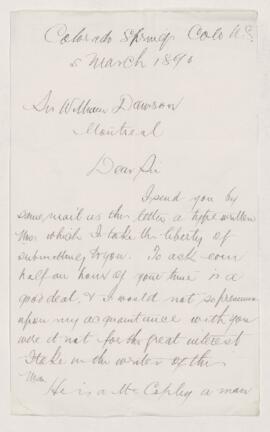 Colorado Springs Colo U.S.
5 March 1890
Sir William Dawson
Montreal
Dear Sir
I send you by
same mail as this letter a type written
Mss. which I take the liberty of
submitting to you. To ask even
half an hour of your time is a
good deal, & I would not so presume
upon my acquaintance with you
were it not for the great interest
I take in the writer of this
Mss.
He is a Mr a man